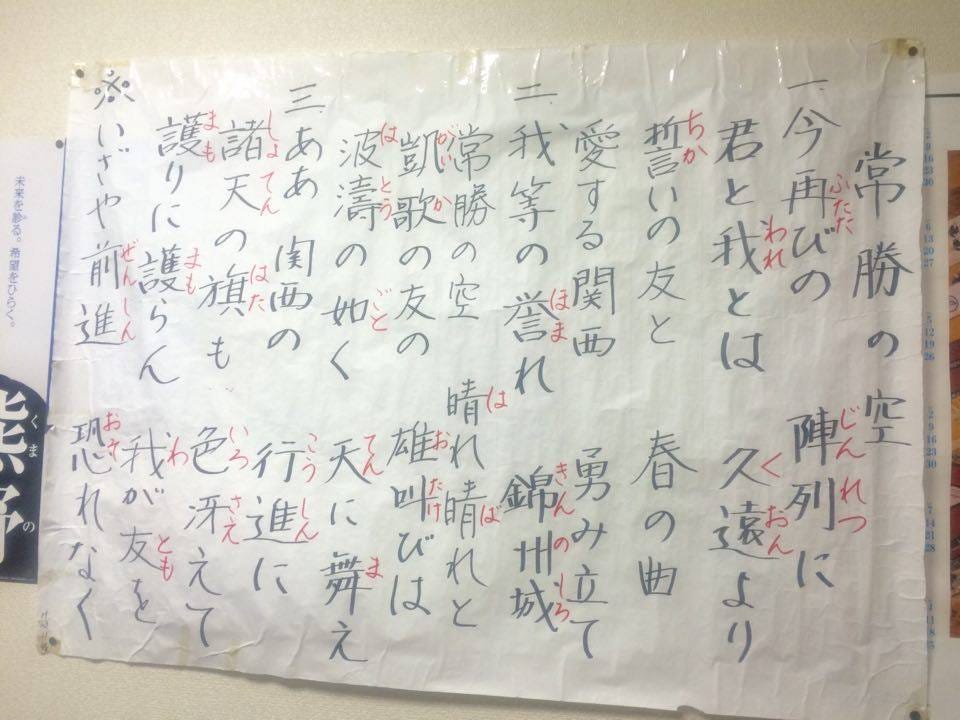 常勝の空
一、今再びの 陣列に
ふたた じんれつ
君と我とは 久遠より
われ くおん
誓いの友と 春の曲
ちか
愛する関西 勇み立て
二、我等の誉れ 錦州城
ほま きんのじろ
常勝の空 晴れ晴れと
は ば
凱歌の友の 雄叫びは
がいか おたけ
波濤の如く 天に舞え
はとう ごと てん ま
三、ああ 関西の 行進に
こうしん
諸天の旗も 色冴えて
しょてん はた いろさえ
護りに護らん 我が友を
まも まも わ とも
※いざや前進 恐れなく
ぜんしん おそ
未来を る。希望をひらく。
熊野
くまの